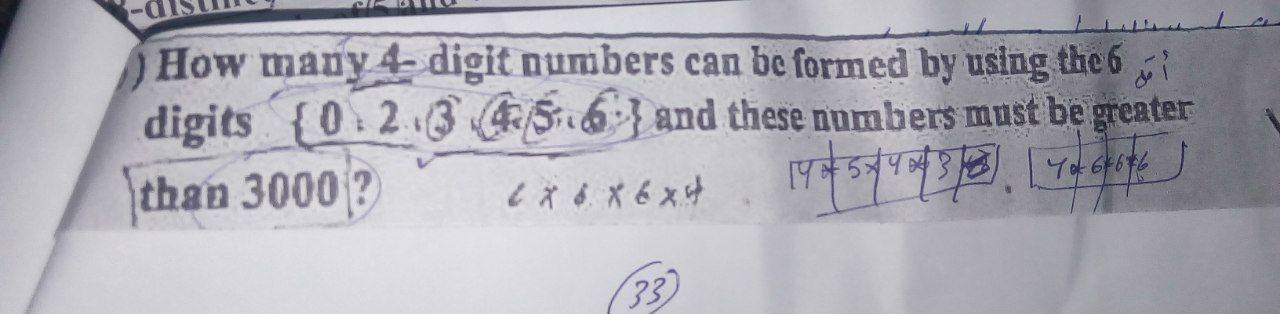 ) How many 4- digit numbers can be formed by using the 6
digits {0, 2, 3, 4, 5, 6} and these numbers must be greater
than 3000 ?
6 x 6 x 6 x 4
4 x 5 x 4 x 3
4 x 6 x 6 x 6
33